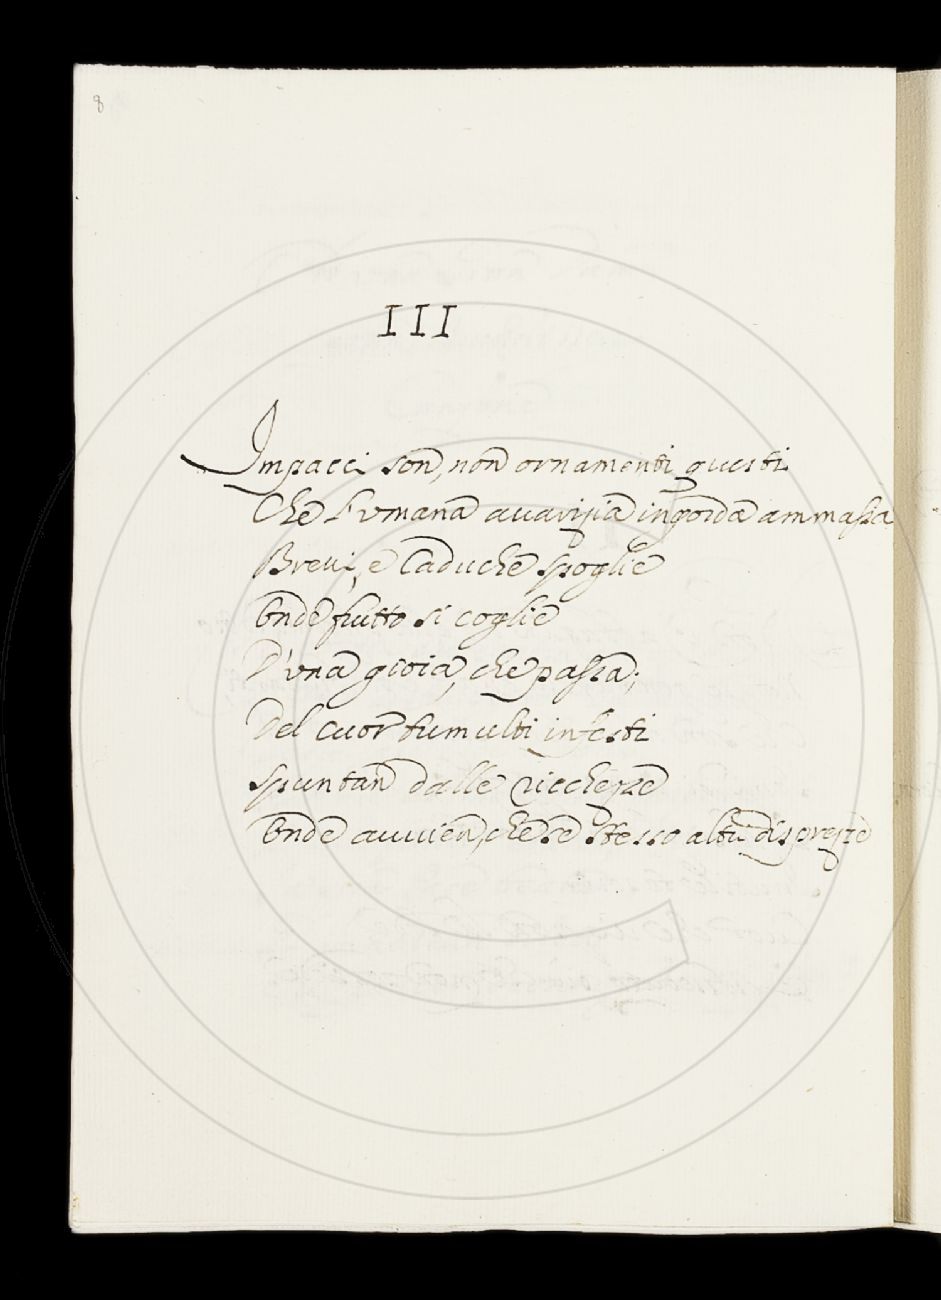 8
III
Impacci son, non ornamenti questi
Che l'vmana auarizia ingorda ammassa
Breui, e caduche spoglie
Onde frutto si coglie
D'vna gioia, che passa;
Del cuor tumulti infesti
Spuntan dalle ricchezze
Onde auuien, che se stesso altri disprezze